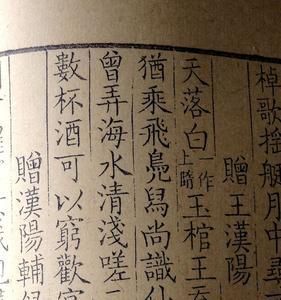 棹歌搖艇月中尋
贈王漢陽
天落白一作上墮玉棺王
猶乘飛鳧舄尚識仙
曾弄海水清淺嗟
數杯酒可以窮歡宴
贈漢陽輔